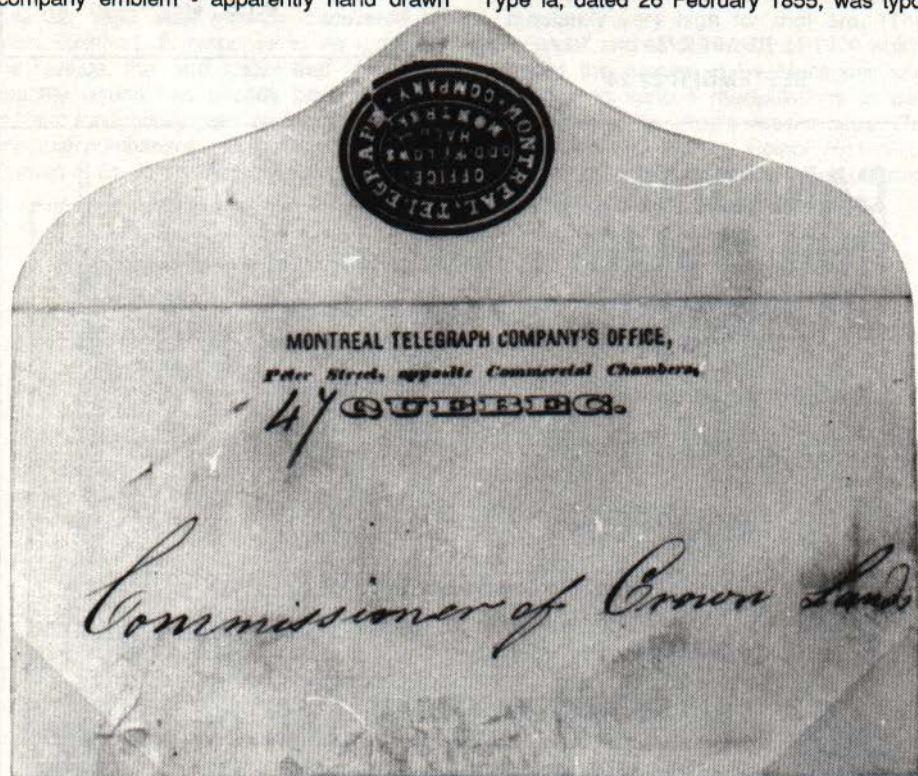 company emblem - apparently hand drawn
Type Ia, dated 26 February 1855, was typo
MONTREAL TELEGRAPH COMPANY.
OFFICE.
ODD FELLOWS
HALL
MONTREAL
MONTREAL TELEGRAPH COMPANY'S OFFICE,
Peter Street, opposite Commercial Chambers,
47 QUEBEC.
Commissioner of Crown Lands